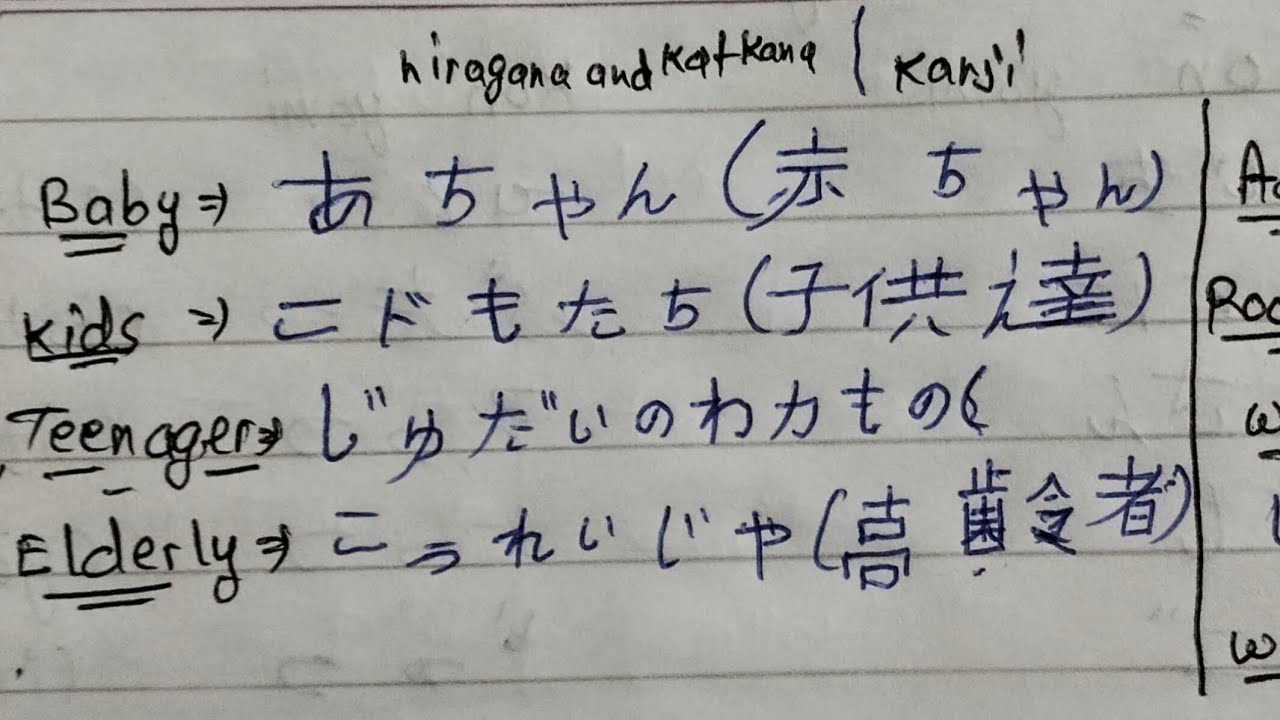 hiragana and Katkana | Kanji
Baby⇒ あちやん (赤ちやん)
Kids ⇒ こドもたち (子供達)
Teenager⇒ じゆだいのわカもの(
Elderly⇒ こうれいじや (高齢者)